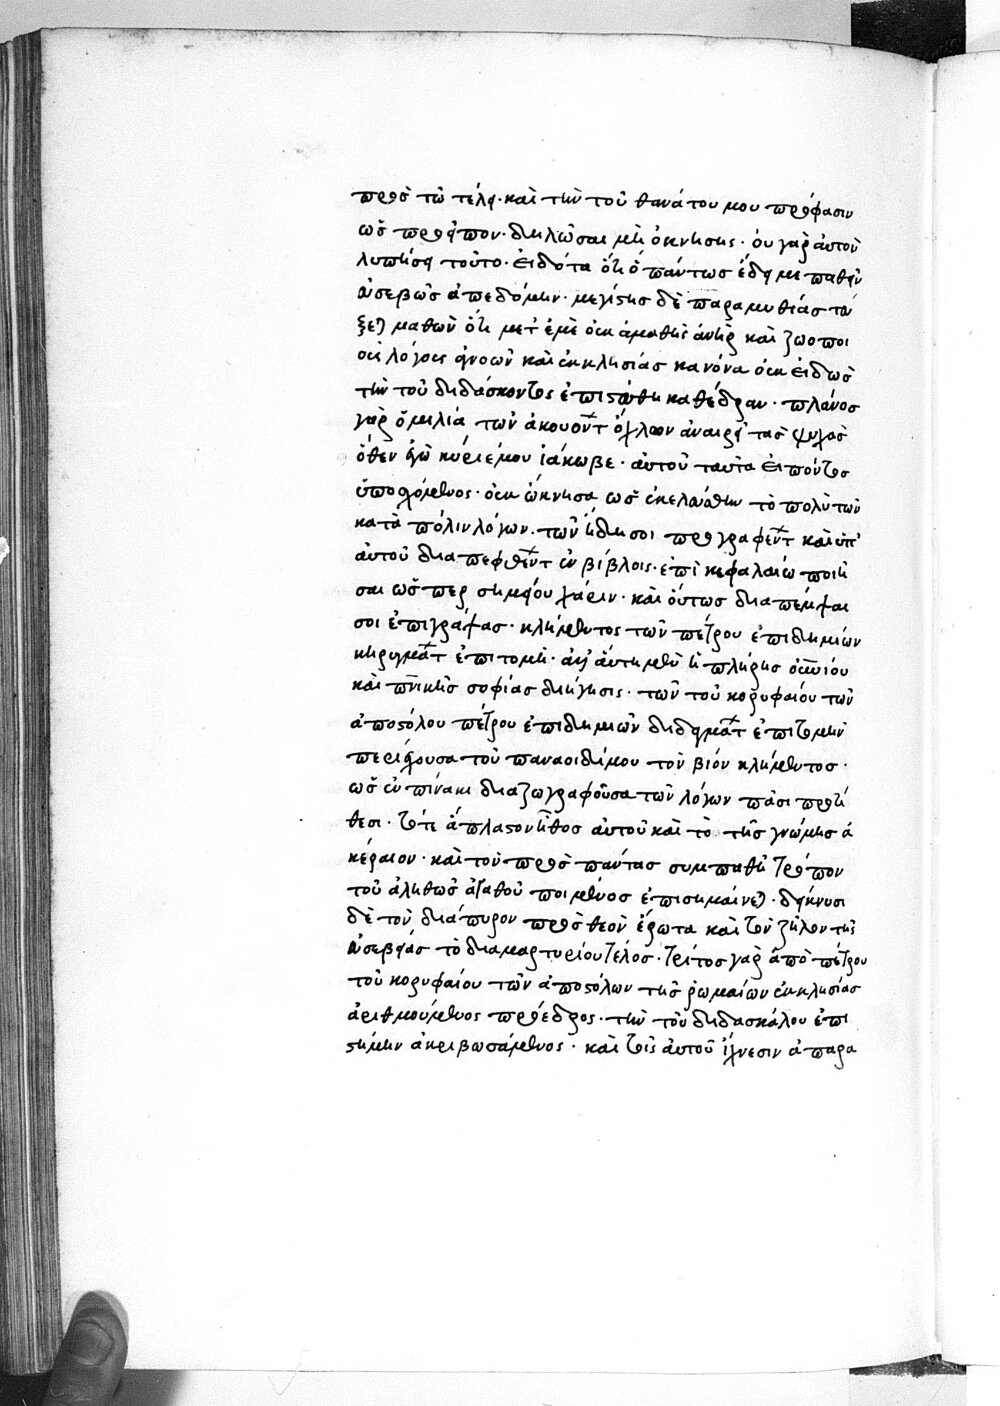 πρὸς τῷ τέλει· καὶ τὴν τοῦ θανάτου μου πρόφασιν
ὡς πρέπον· δηλῶσαι μὴ ὀκνήσης· οὐ γὰρ αὐτὸν
λυπήσει τοῦτο· εἰδότα ὅτι ὃ πάντως ἔδει με παθεῖν
εὐσεβῶς ἀπεδόμην· μεγίστης δὲ παραμυθίας τεύ
ξεται μαθὼν ὅτι μετ ἐμὲ οὐκ ἀμαθὴς ἀνὴρ καὶ ζωοποι
οὺς λόγους ἀγνοῶν καὶ ἐκκλησίας κανόνα οὐκ εἰδὼς
τὴν τοῦ διδάσκοντος ἐπιστεύθη καθέδραν· πλάνος
γὰρ ὁμιλία τῶν ἀκουόντ ὄχλων ἀναιρεῖ τὰς ψυχὰς
ὅθεν ἐγὼ κύριέ μου ἰάκωβε· αὐτοῦ ταῦτα εἰπόντος
ὑποσχόμενος· οὐκ ὤκνησα ὡς ἐκελεύσθην τὸ πολὺ τῶν
κατὰ πόλιν λόγων· τῶν ἤδη σοι προγραφέντ καὶ ὑπ'
αὐτοῦ διαπεμφθέντ ἐν βίβλοις· ἐπὶ κεφαλαίω ποιή
σαι ὥσπερ σημείου χάριν· καὶ οὕτως διαπέμψαι
σοι ἐπιγράψας· κλήμεντος τῶν πέτρου ἐπιδημιῶν
κηρυγμάτ ἐπιτομή· αὕτη μὲν ἡ πλήρης οὐνίου
καὶ πνικῆς σοφίας διήγησις· τῶν τοῦ κορυφαίου τῶν
ἀποστόλου πέτρου ἐπιδημιῶν διδαγμάτ ἐπιτομὴν
περιέχουσα τοῦ παναοιδίμου τὸν βίον κλήμεντος·
ὡς ἐν πίνακι διαζωγραφοῦσα τῶν λόγων πᾶσι προτί
θεσι· τό τε ἄπλαστον ἦθος αὐτοῦ καὶ τὸ τῆς γνώμης ἀ
κέραιον· καὶ τὸν πρὸς πάντας συμπαθῆ τρόπον
τοῦ ἀληθῶς ἀγαθοῦ ποιμένος ἐπισημαίνεται· δείκνυσι
δὲ τὸν διάπυρον πρὸς θεὸν ἔρωτα καὶ τὸν ζῆλον τῆς
εὐσεβείας τὸ διὰ μαρτυρίου τέλος· τρίτος γὰρ ἀπὸ πέτρου
τοῦ κορυφαίου τῶν ἀποστόλων τῆς ῥωμαίων ἐκκλησίας
ἀριθμούμενος πρόεδρος· τὴν τοῦ διδασκάλου ἐπι
στήμην ἀκριβωσάμενος· καὶ τοῖς αὐτοῦ ἴχνεσιν ἀπαρα